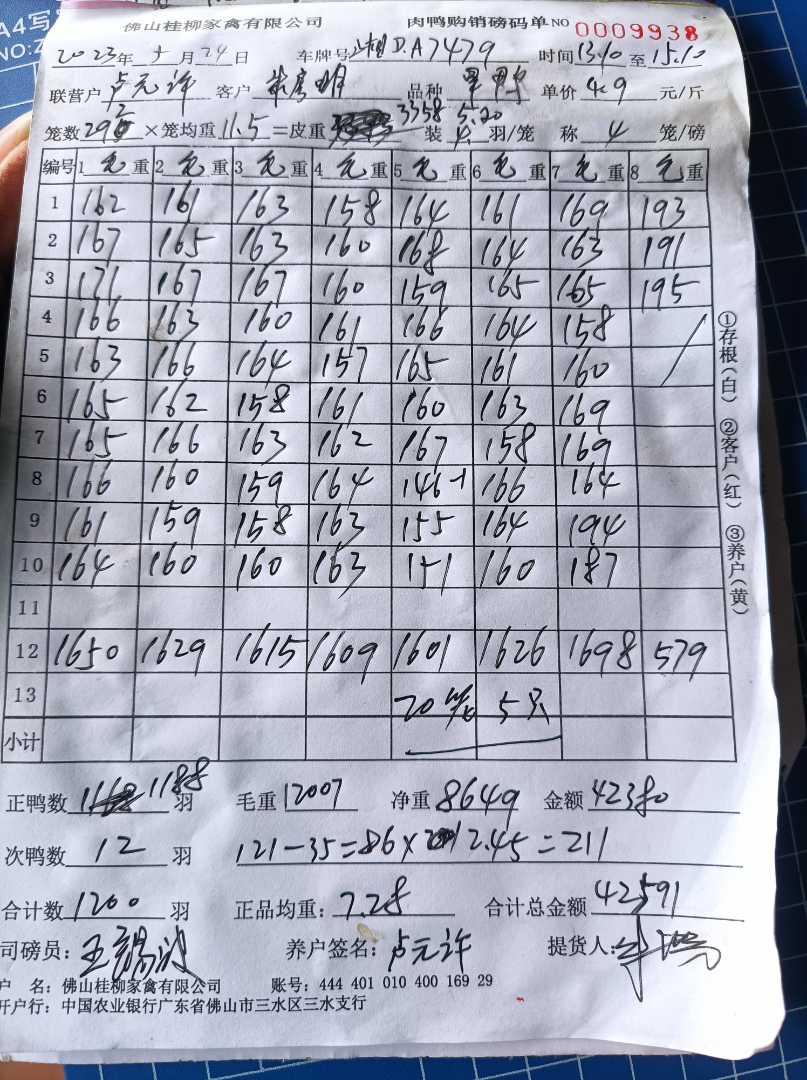 佛山桂柳家禽有限公司 肉鸭购销磅码单 NO 0009938
2023年 月24日 车牌号 D.A7479 时间13.10至15.10
联营户 卢元许 客户 品种 单价 4.9 元/斤
笼数 292 ×笼均重 11.5 =皮重 3358 装 5.20 羽/笼 称 4 笼/磅
编号 1 毛 重 2 毛 重 3 毛 重 4 毛 重 5 毛 重 6 毛 重 7 毛 重 8 毛 重
1 162 161 163 158 164 161 169 193
2 167 165 163 160 168 164 163 191
3 171 167 167 160 159 165 165 195
4 166 163 160 161 166 164 158
5 163 166 164 157 165 161 160
6 165 162 158 161 160 163 169
7 165 166 163 162 167 158 169
8 166 160 159 164 146-1 166 164
9 161 159 158 163 155 164 194
10 164 160 160 163 151 160 187
11
12 1650 1629 1615 1609 1601 1626 1698 579
13 20笼 5只
小计
正鸭数 1188 羽 毛重 12007 净重 8649 金额 42380
次鸭数 12 羽 121-35=86× 2.45=211
合计数 1200 羽 正品均重: 7.28 合计总金额 42591
司磅员: 养户签名: 卢元许 提货人:
户 名: 佛山桂柳家禽有限公司 账号: 444 401 010 400 169 29
开户行: 中国农业银行广东省佛山市三水区三水支行
①存根(白) ②客户(红) ③养户(黄)